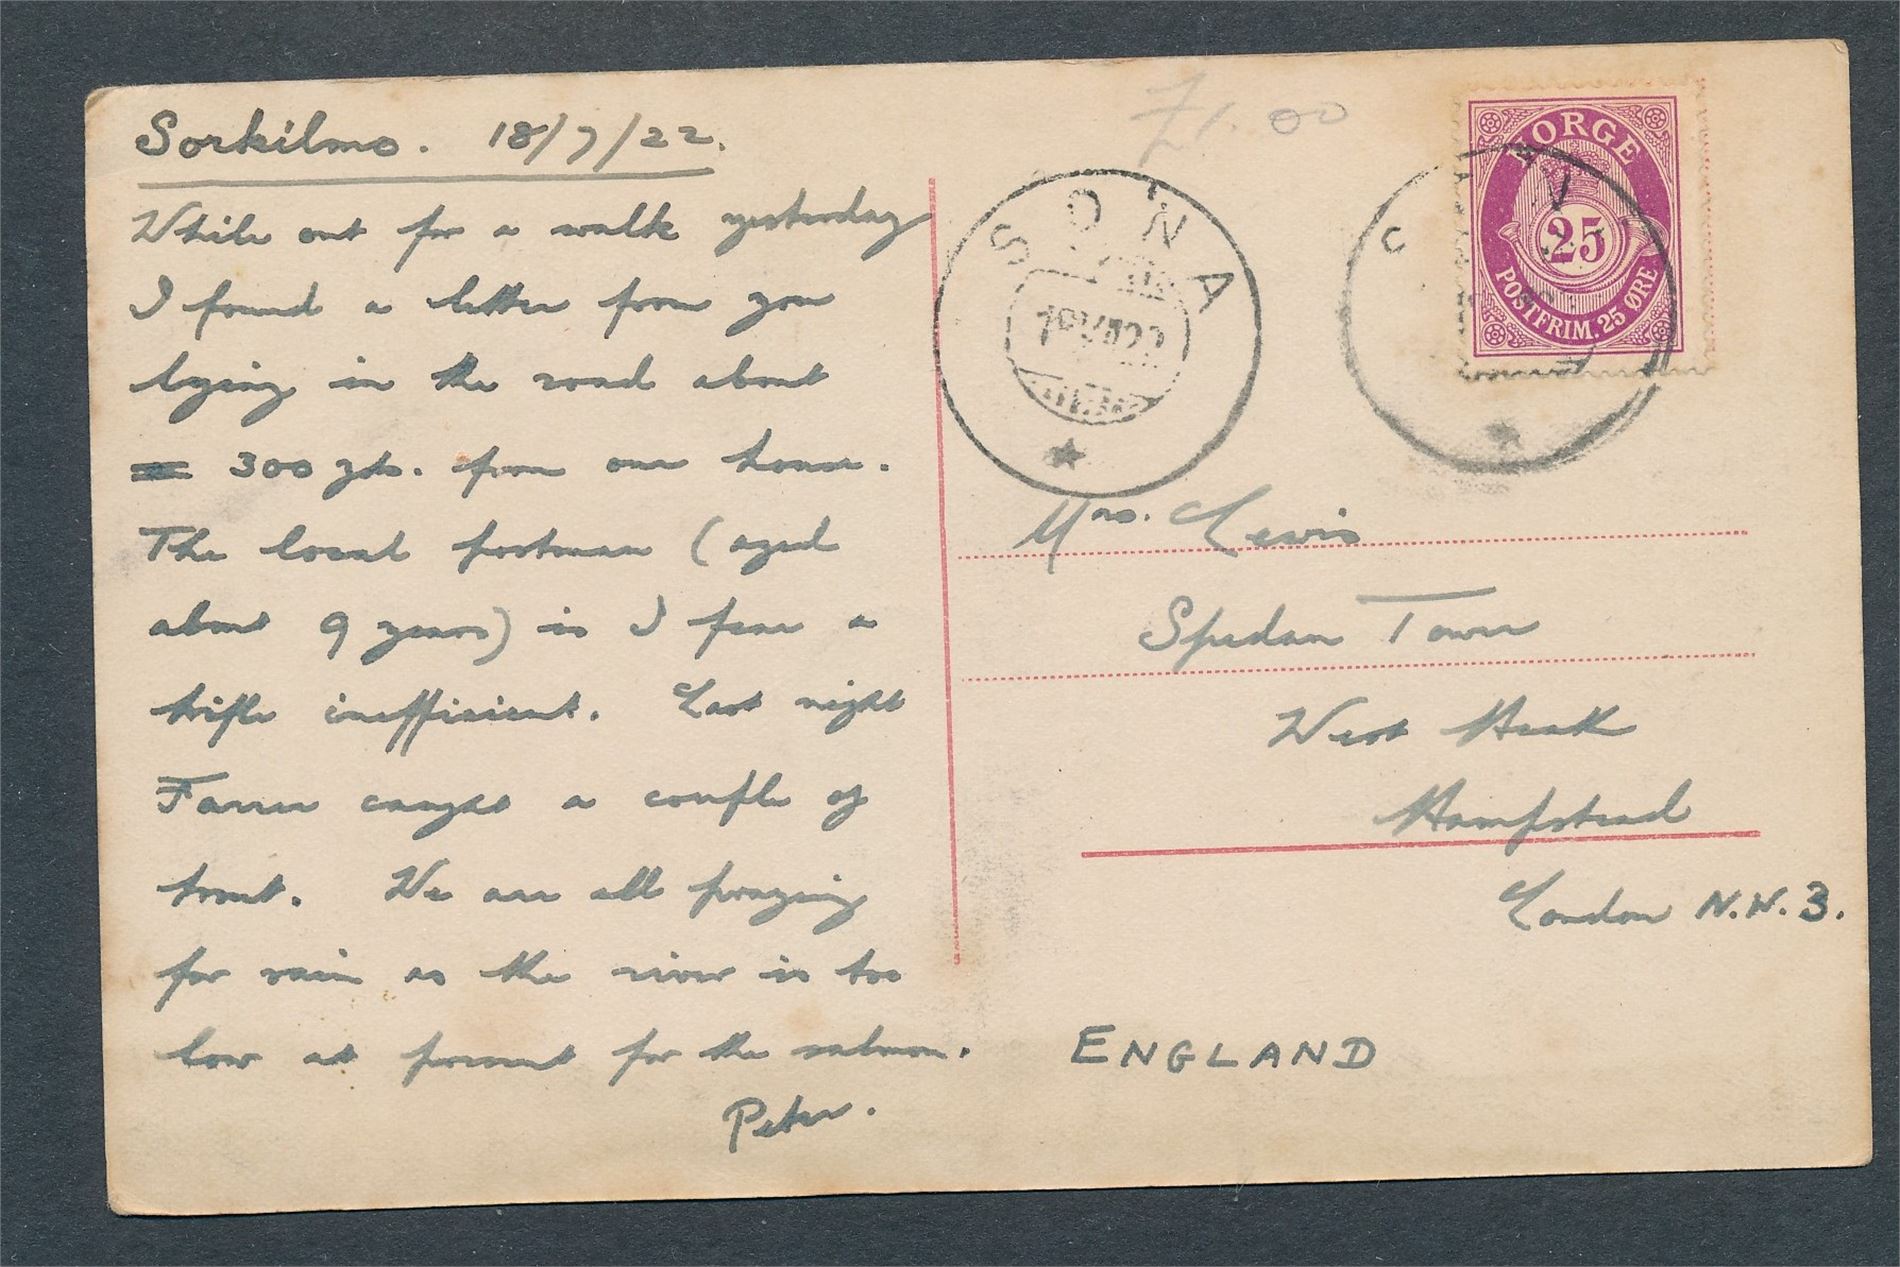 Sorkilmo. 18/7/22.
While out for a walk yesterday
I found a letter from you
lying in the road about
300 yds. from our house.
The local postman (aged
about 9 years) is I fear a
trifle inefficient. Last night
Farrer caught a couple of
trout. We are all praying
for rain as the river is too
low at present for the salmon.
Peter.
£1.00
SONA
NORGE
25
POSTFRIM. 25 ØRE
Mrs. Lewis
Spedan Tower
West Heath
Hampstead
London N.W.3.
ENGLAND